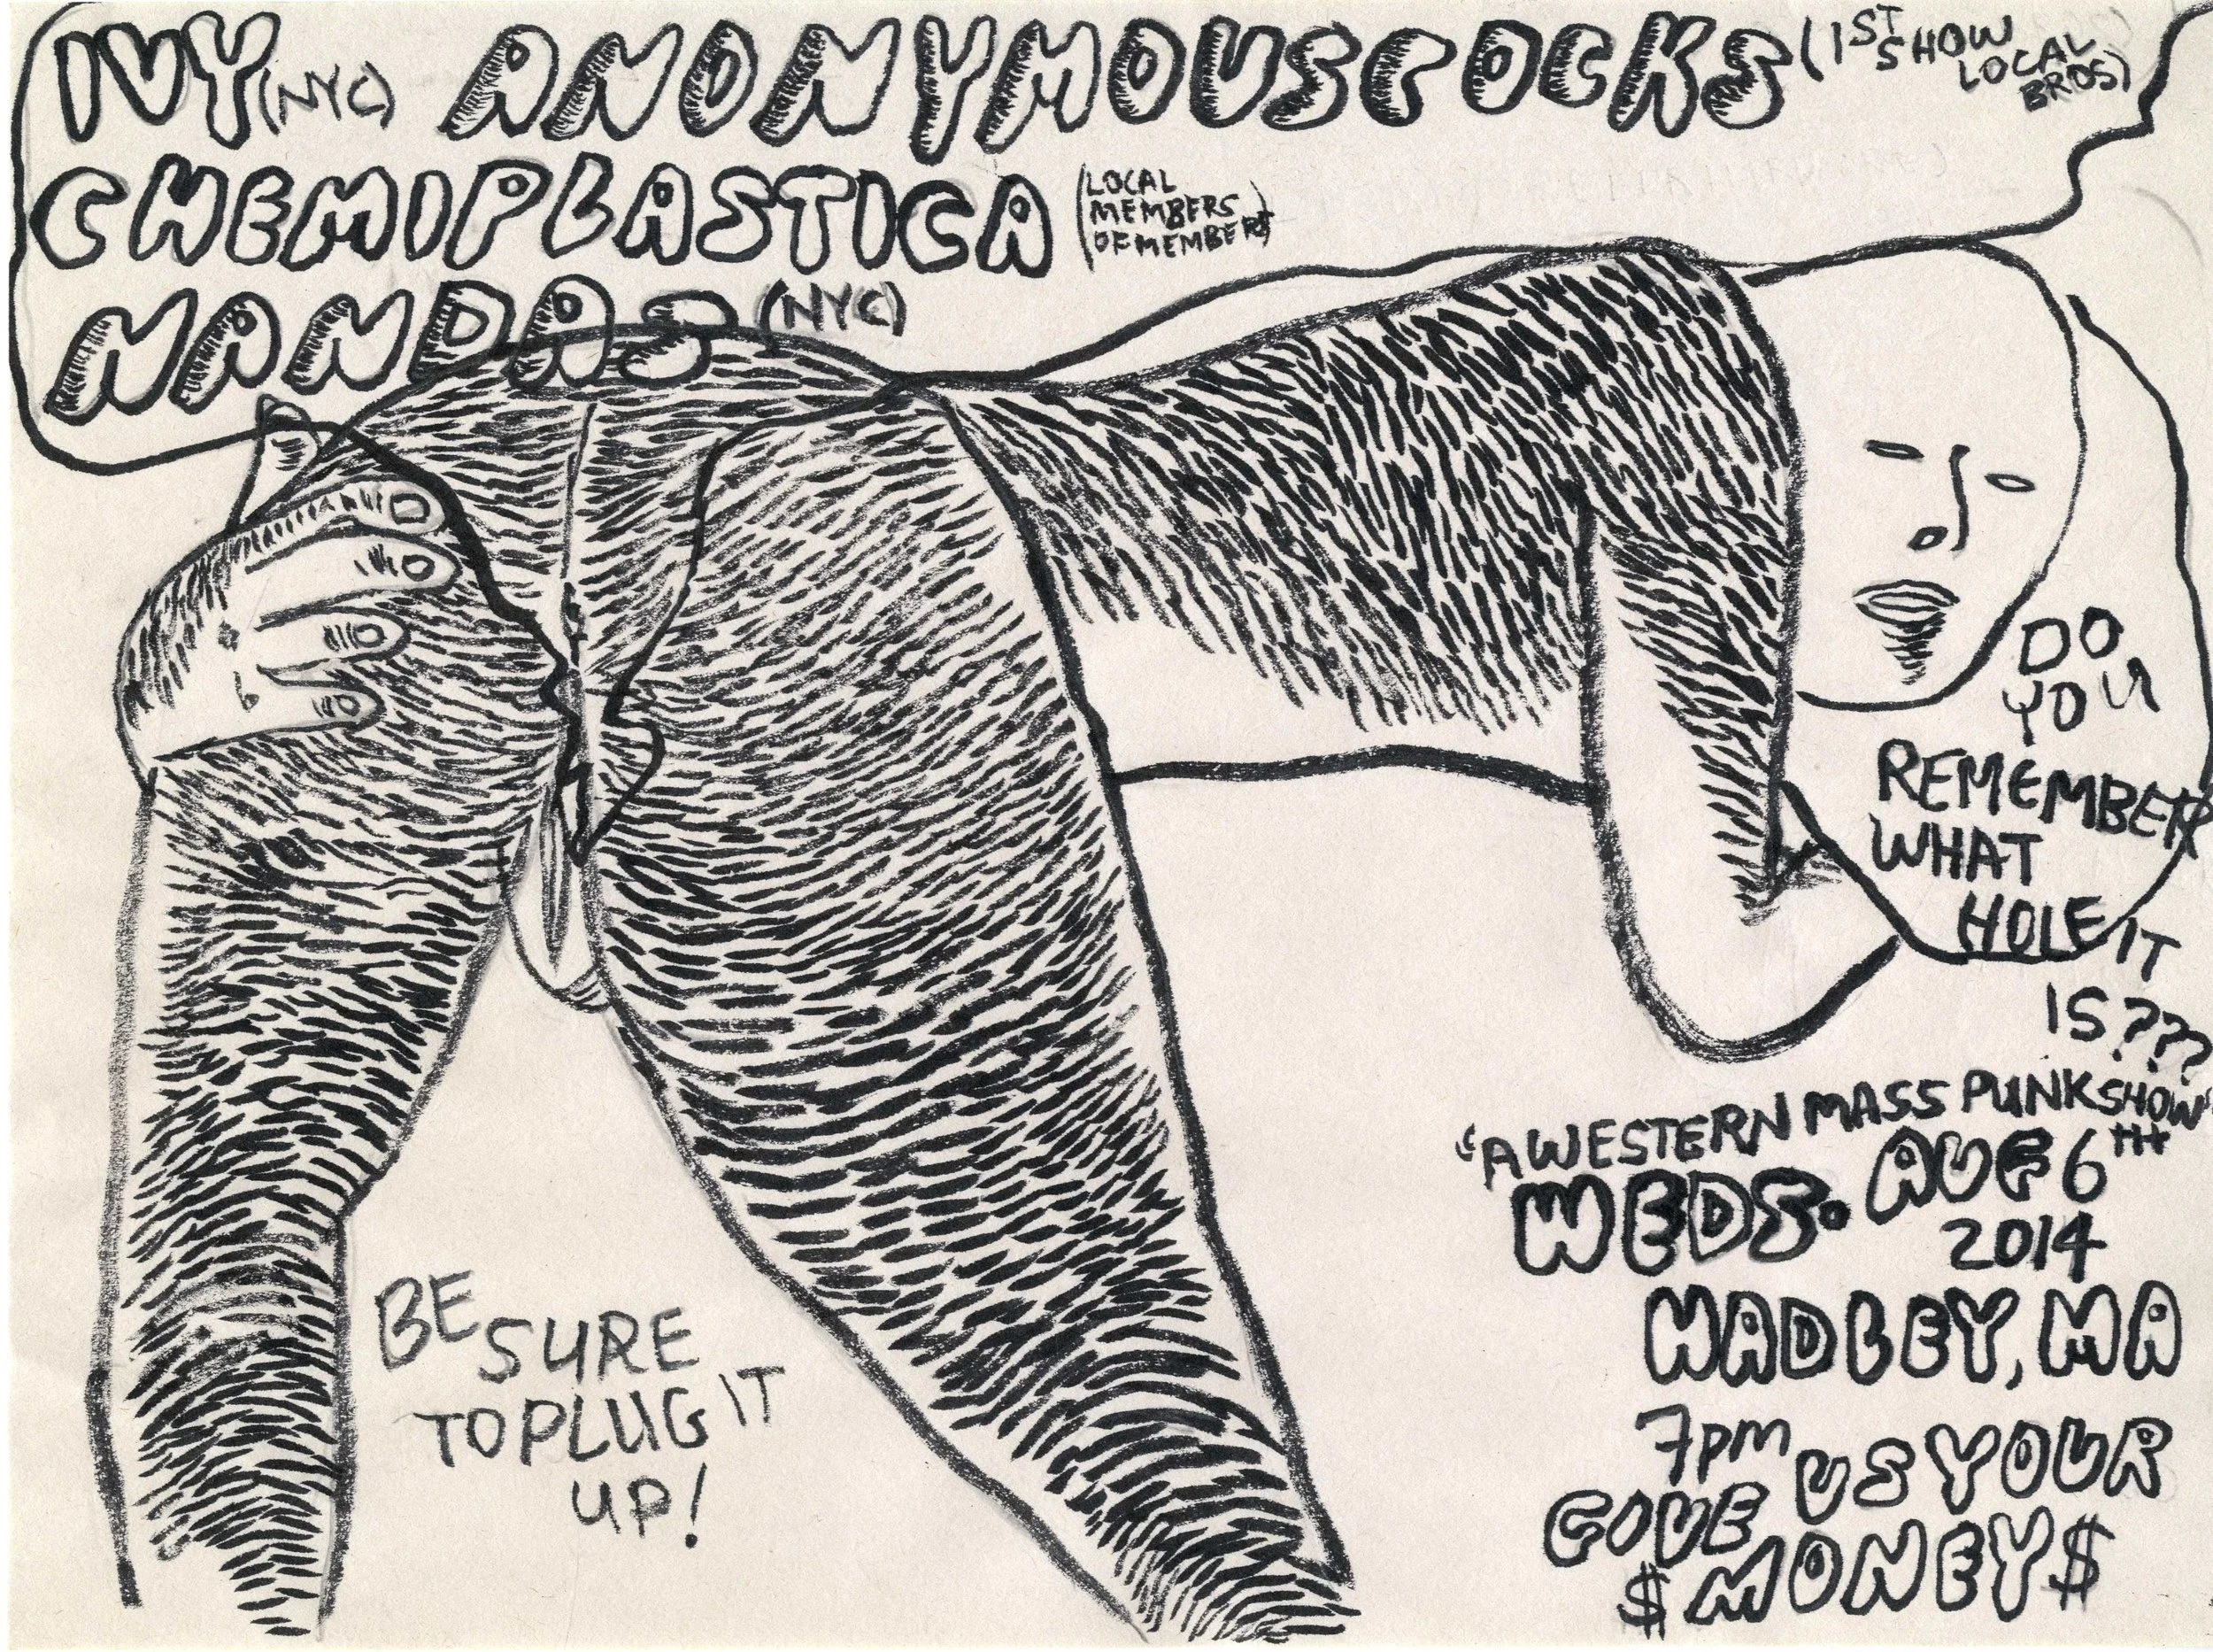 IVY (NYC) ANONYMOUSCOCKS (1ST SHOW LOCAL BROS)
CHEMIPLASTICA (LOCAL MEMBERS OF MEMBERS)
NANDAS (NYC)
DO
YOU
REMEMBER
WHAT
HOLE IT
IS???
"A WESTERN MASS PUNK SHOW"
WEDS. AUG 6TH
2014
HADLEY, MA
7pm
GIVE US YOUR
$MONEY$
BE SURE
TO PLUG IT
UP!